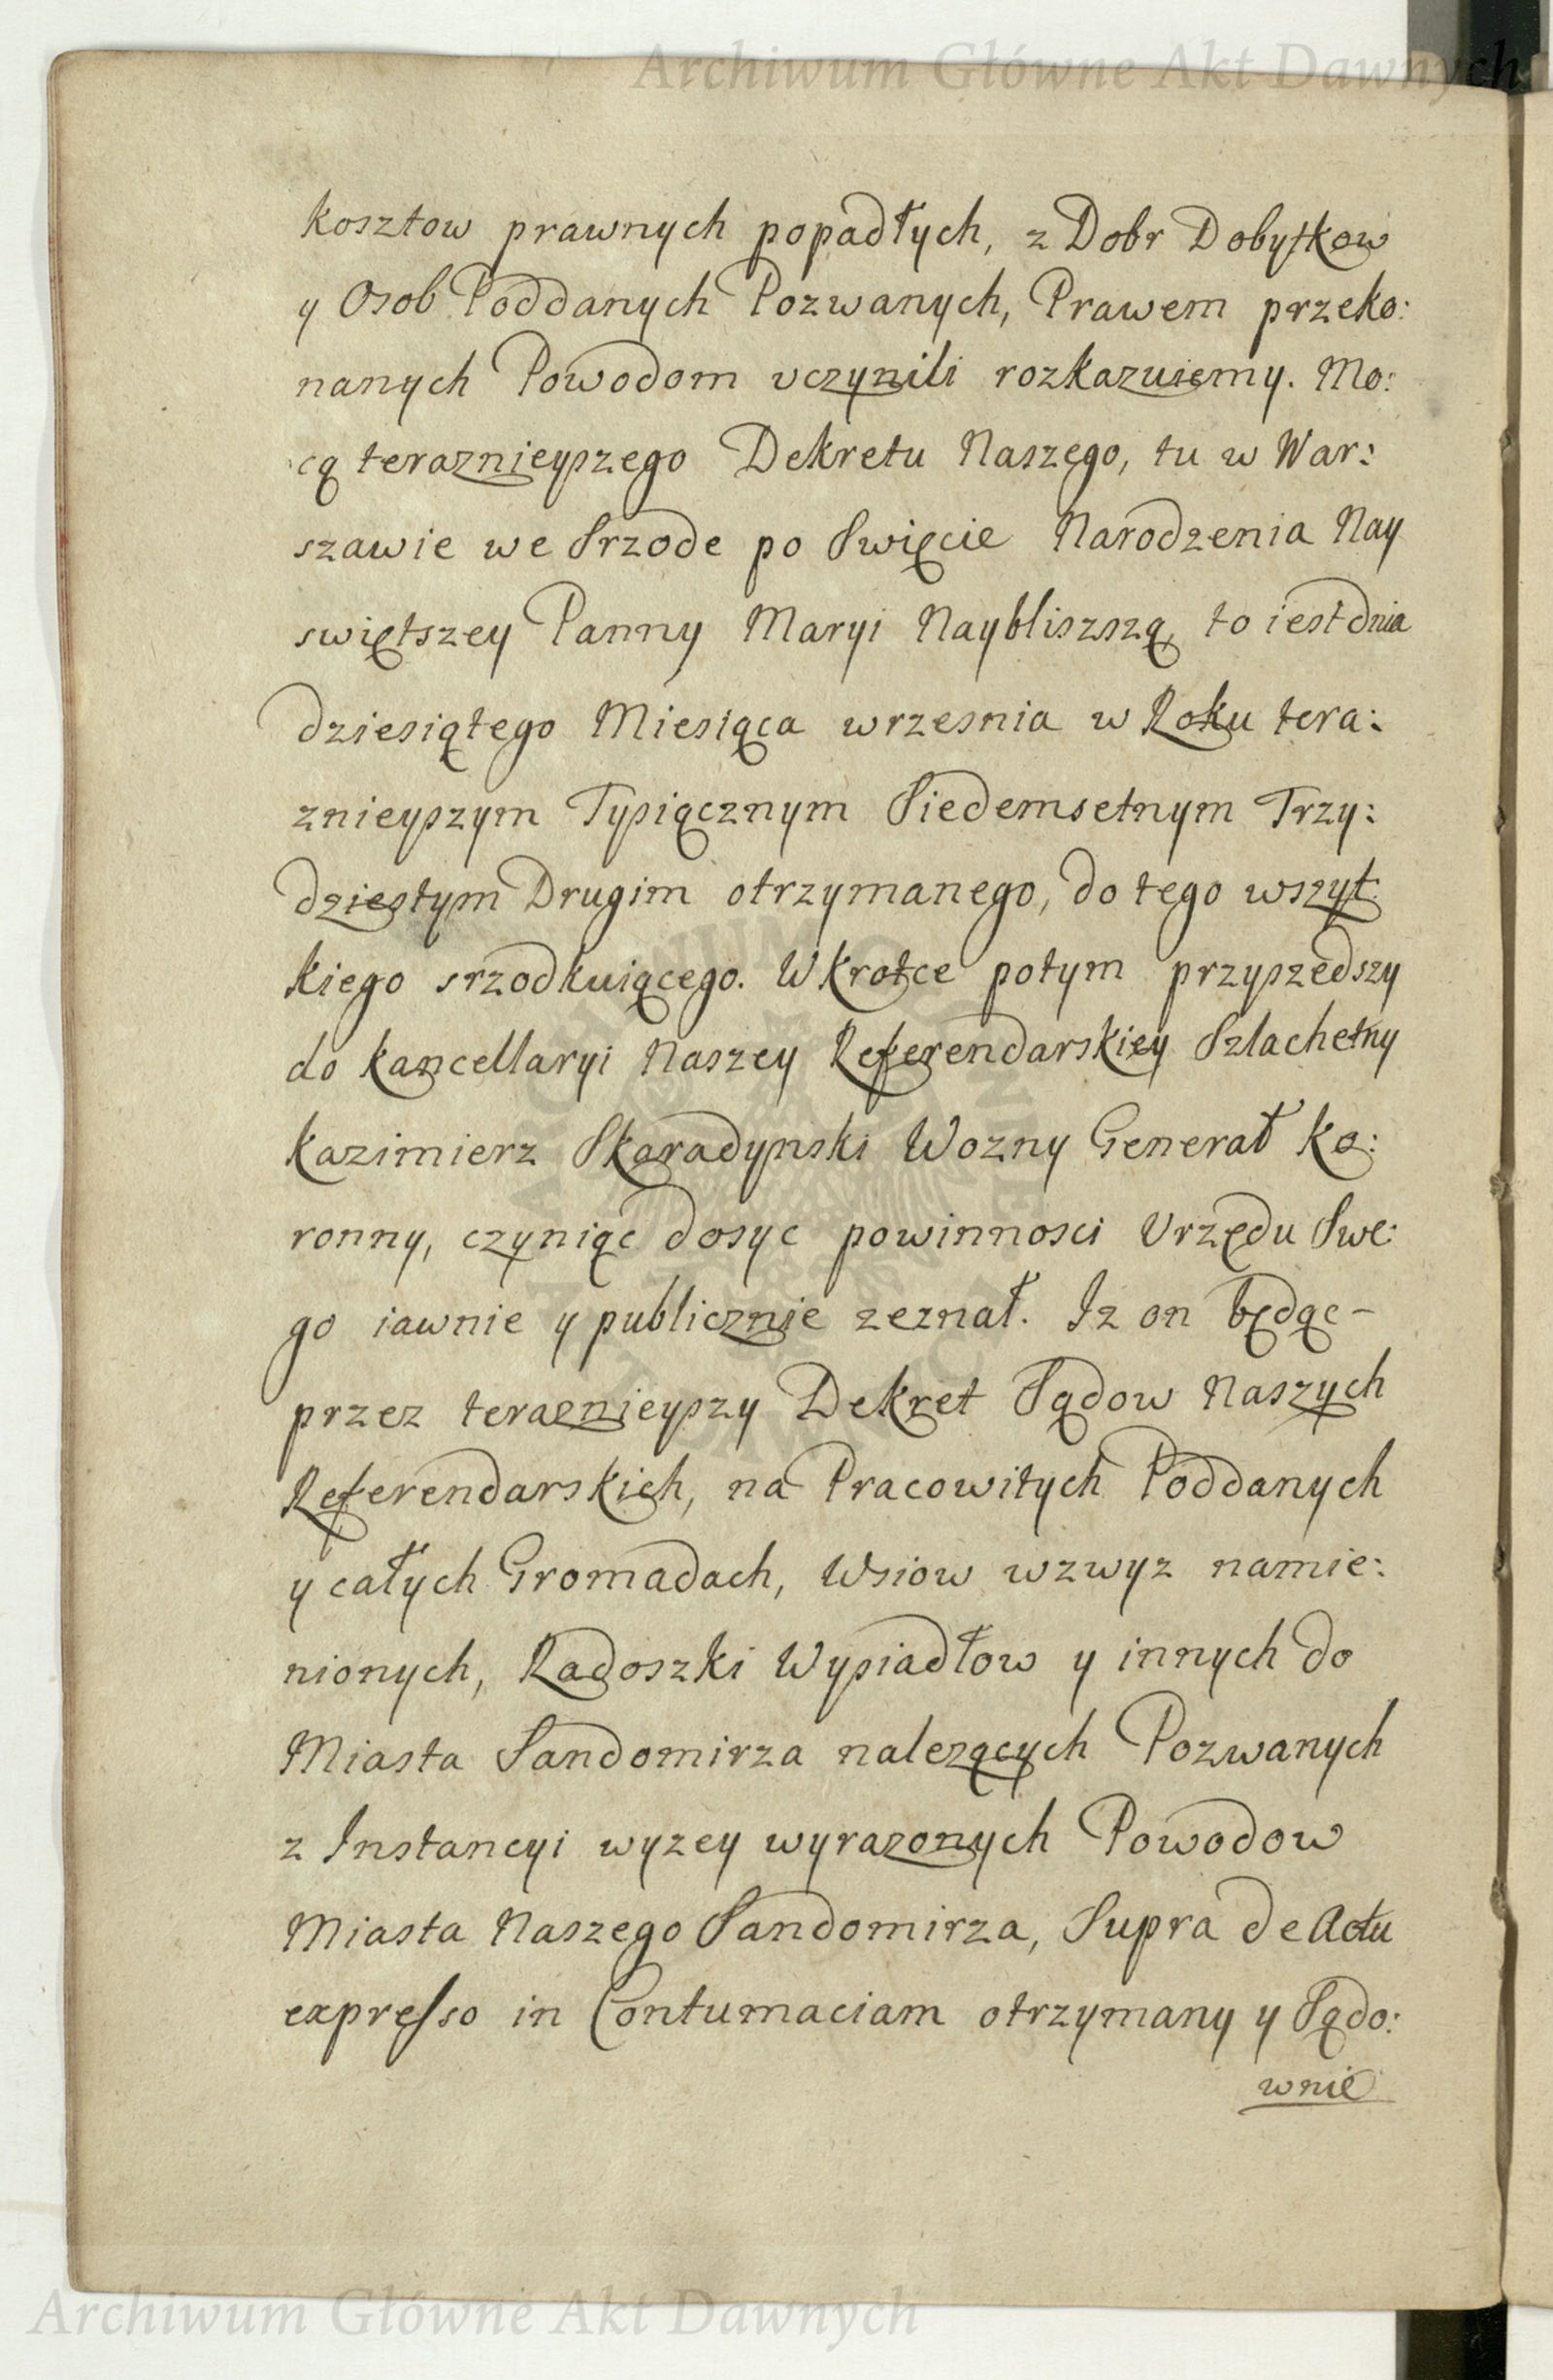 Archiwum Główne Akt Dawnych
kosztow prawnych popadłych, z Dobr Dobytkow
y Osob Poddanych Pozwanych, Prawem przeko:
nanych Powodom vczynili rozkazuiemy. Mo:
cą teraznieyszego Dekretu Naszego, tu w War:
szawie we Srzode po Swięcie Narodzenia Nay
swiętszey Panny Maryi Naybliszszą, to iest dnia
dziesiątego Miesiąca wrzesnia w Roku tera:
znieyszym Tysiącznym Siedemsetnym Trzy:
dziestym Drugim otrzymanego, do tego wszyt:
kiego srzodkuiącego. Wkrotce potym przyszedszy
do kancellaryi Naszey Referendarskiey Szlachetny
Kazimierz Skaradynski Wozny Generał Ko:
ronny, czyniąc dosyc powinnosci Vrzędu Swe:
go iawnie y publicznie zeznał. Iz on będąc –
przez teraznieyszy Dekret Sądow Naszych
Referendarskich, na Pracowitych Poddanych
y całych Gromadach, Wsiow wzwyz namie:
nionych, Radoszki Wysiadłow y innych do
Miasta Sandomirza nalezących Pozwanych
z Instancyi wyzey wyrazonych Powodow
Miasta Naszego Sandomirza, Supra de Actu
expresso in Contumaciam otrzymany y Sądo:
wnie
Archiwum Główne Akt Dawnych